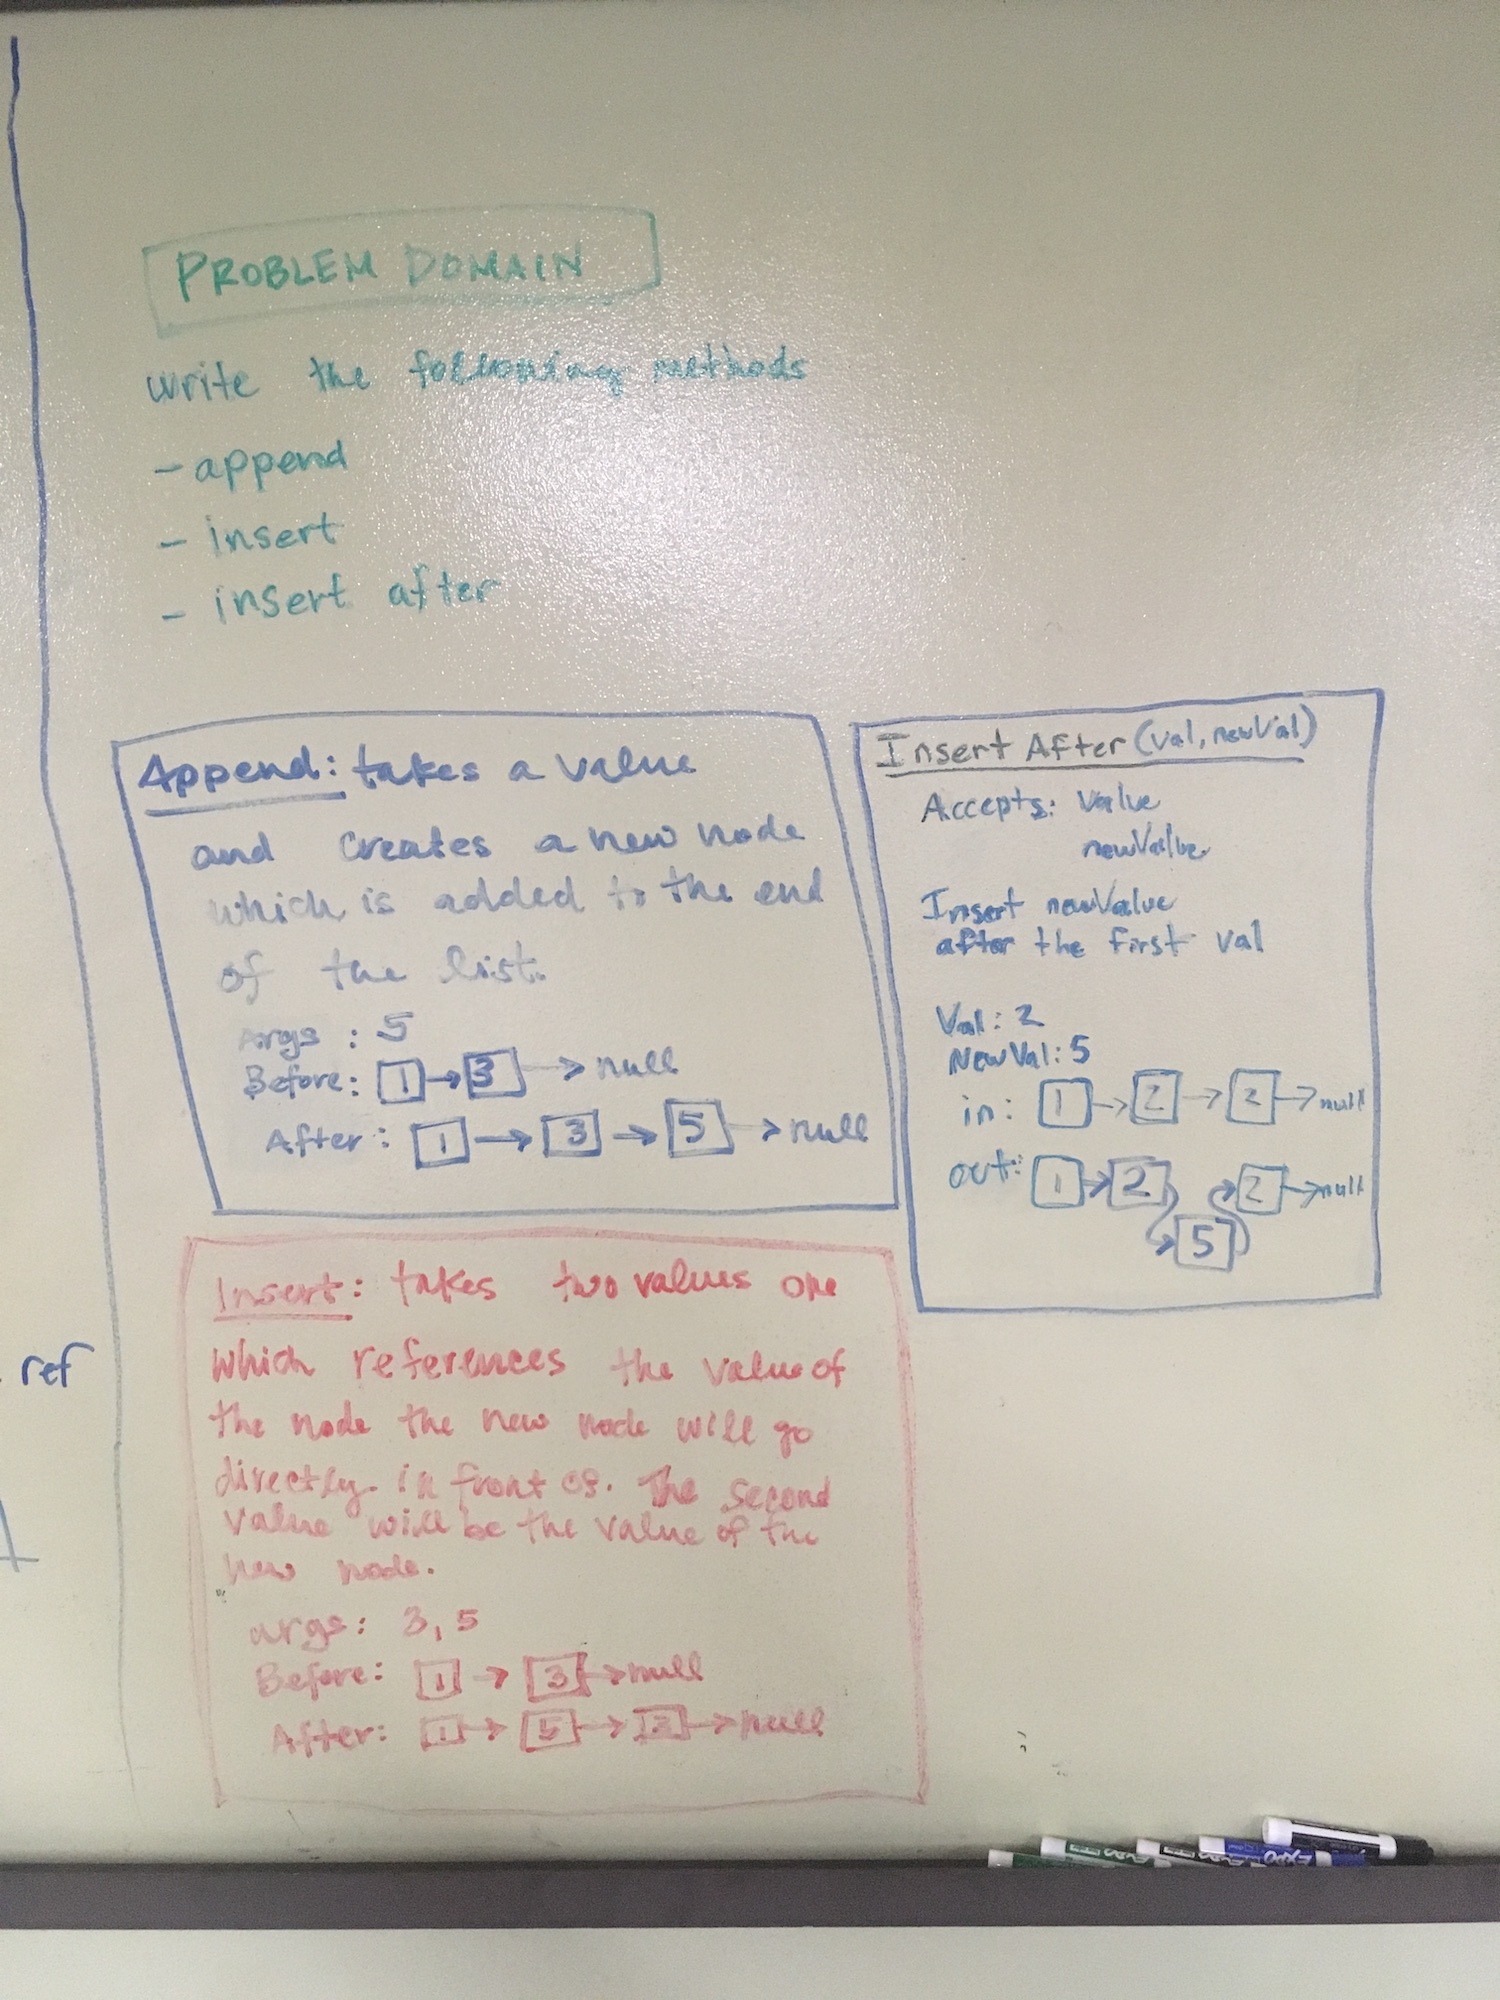 PROBLEM DOMAIN
write the following methods
- append
- insert
- insert after
Append: takes a value
and creates a new node
which is added to the end
of the list.
Args : 5
Before: 1 → 3 → null
After: 1 → 3 → 5 → null
Insert After (val, newVal)
Accepts: value
newValue
Insert newValue
after the first val
Val: 2
NewVal: 5
in: 1 → 2 → 2 → null
out: 1 → 2 → 5 → 2 → null
Insert: takes two values one
which references the value of
the node the new node will go
directly in front of. The second
value will be the value of the
new node.
args: 3, 5
Before: 1 → 3 → null
After: 1 → 5 → 3 → null
ref
EXPO